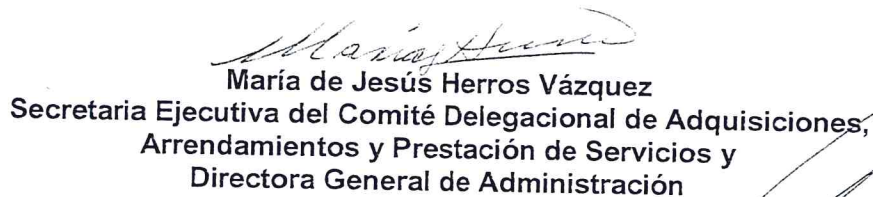 María de Jesús Herros Vázquez
Secretaria Ejecutiva del Comité Delegacional de Adquisiciones,
Arrendamientos y Prestación de Servicios y
Directora General de Administración